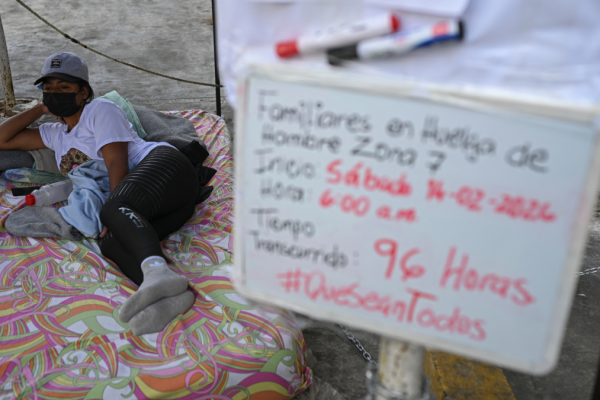 Familiares en Huelga de
Hambre Zona 7
Inicio: Sábado 14-02-2026
Hora: 6:00 am
Tiempo
Transcurrido: 96 Horas
#QueSeánTodos